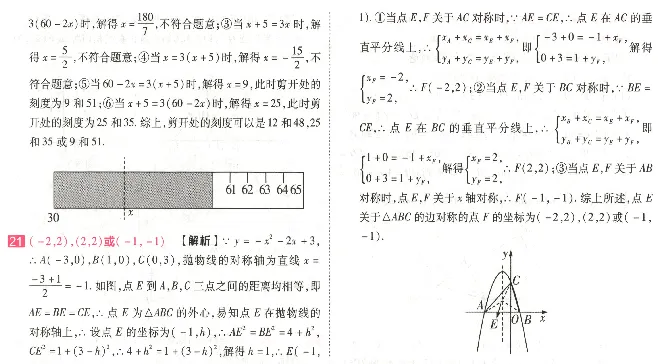 3(60-2x)时,解得 x=180/7,不符合题意;③当 x+5=3x 时,解
得 x=5/2,不符合题意;④当 x=3(x+5)时,解得 x=-15/2,不
符合题意;⑤当 60-2x=3(x+5)时,解得 x=9,此时剪开处的
刻度为 9 和 51;⑥当 x+5=3(60-2x)时,解得 x=25,此时剪
开处的刻度为 25 和 35. 综上,剪开处的刻度可以是 12 和 48,25
和 35 或 9 和 51.
61 62 63 64 65
30 x
21 (-2,2),(2,2)或(-1,-1) 【解析】∵ y=-x²-2x+3,
∴A(-3,0),B(1,0),C(0,3),抛物线的对称轴为直线 x=
(-3+1)/2=-1. 如图,点 E 到 A,B,C 三点之间的距离均相等,即
AE=BE=CE,∴点 E 为△ABC 的外心,易知点 E 在抛物线的
对称轴上,∴设点 E 的坐标为(-1,h),∴AE²=BE²=4+h²,
CE²=1+(3-h)²,∴4+h²=1+(3-h)²,解得 h=1,∴E(-1,
1). ①当点 E,F 关于 AC 对称时,∵AE=CE,∴点 E 在 AC 的垂
直平分线上,∴{x_A+x_C=x_E+x_F, y_A+y_C=y_E+y_F, 即{-3+0=-1+x_F, 0+3=1+y_F, 解得
{x_F=-2, y_F=2, ∴F(-2,2);②当点 E,F 关于 BC 对称时,∵BE=
CE,∴点 E 在 BC 的垂直平分线上,∴{x_B+x_C=x_E+x_F, y_B+y_C=y_E+y_F, 即
{1+0=-1+x_F, 0+3=1+y_F, 解得{x_F=2, y_F=2, ∴F(2,2);③当点 E,F 关于 AB
对称时,点 E,F 关于 x 轴对称,∴F(-1,-1). 综上所述,点 E
关于△ABC 的边对称的点 F 的坐标为(-2,2),(2,2)或(-1,
-1).
y
C
A
E
O B x